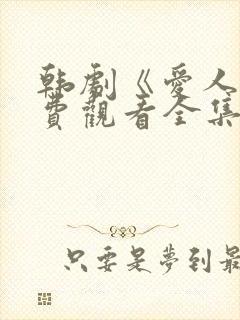 韩劇《愛人
費觀看全集
只要是夢到最